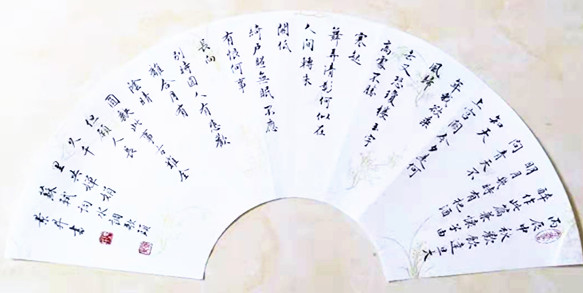 丙辰中
秋歡飲達旦大
醉作此篇兼懷子由
明月幾時有把酒
問青天不
知天
上宮闕今夕是何
年我欲乘
風歸
去又恐瓊樓玉宇
高寒不勝
寒起
舞弄清影何似在
人間轉朱
閣低
綺戶照無眠不應
有恨何事
長向
別時圓人有悲歡
離合月有
陰晴
圓缺此事古難全
但願人長
久千
里共嬋娟
蘇軾詞水調歌頭